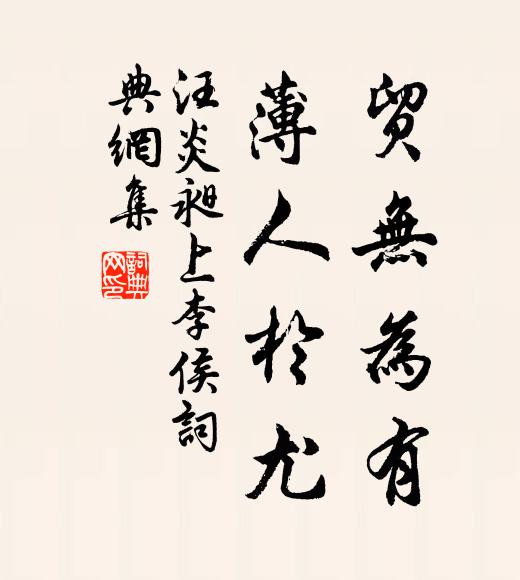 貿無為有
薄人於尤
汪炎昶上李侯詞
典網集
詞典网印